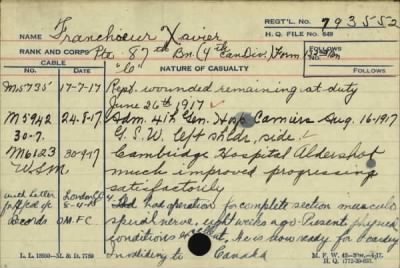 NAME Franchoeur Xavier REGT'L. No. 793552
H. Q. FILE No. 649
RANK AND CORPS Pte. 87th Bn. (4th Can Div) Form 132nd Bn
CABLE "C" FOLLOWS
No. DATE NATURE OF CASUALTY FOLLOWS
M5735 17-7-17 Rept. wounded remaining at duty
June 26th 1917
M5942 24-8-17 Adm. 4th Gen. Hosp Camiers Aug. 16-1917
30-7. G. S. W. left shldr, side.
M6123 30-9-17 Cambridge Hospital Aldershot
W.S.M. much improved progressing
satisfactorily
with Letter London Had had operation for complete section musculo
spiral nerve, eight weeks ago. Present physical
Records O.M.F.C conditions excellent, He is now ready for
in to Canada
L. L. 18050—M. & D. 7789
M. F. W. 42
H. Q. 1772-39-893.